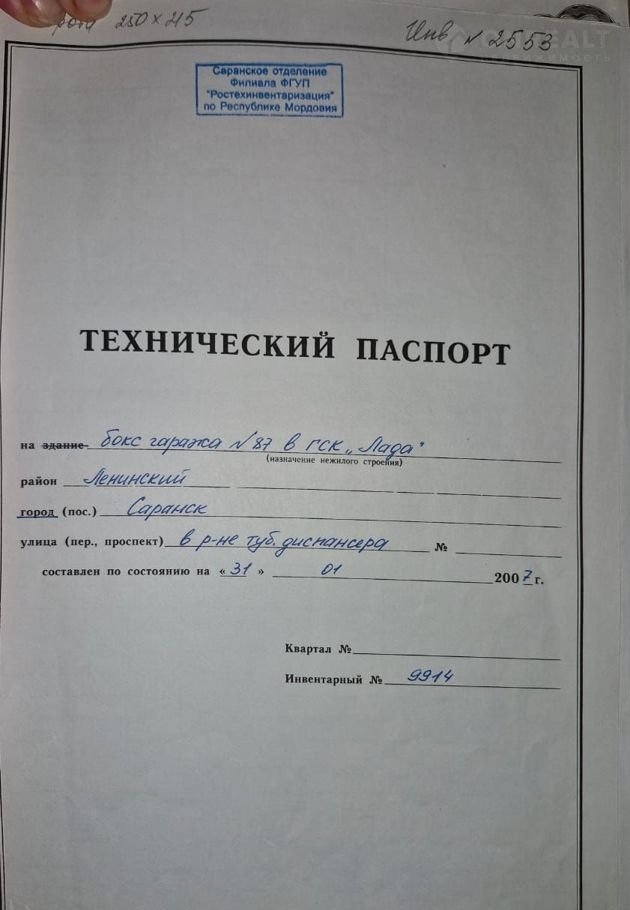 250 x 215
Инв № 2553
Саранское отделение
Филиала ФГУП
"Ростехинвентаризация"
по Республике Мордовия
ТЕХНИЧЕСКИЙ ПАСПОРТ
на здание бокс гаража №87 в ГСК „Лада"
(назначение нежилого строения)
район Ленинский
город (пос.) Саранск
улица (пер., проспект) в р-не туб. диспансера №
составлен по состоянию на «31» 01 2007 г.
Квартал №
Инвентарный № 9914